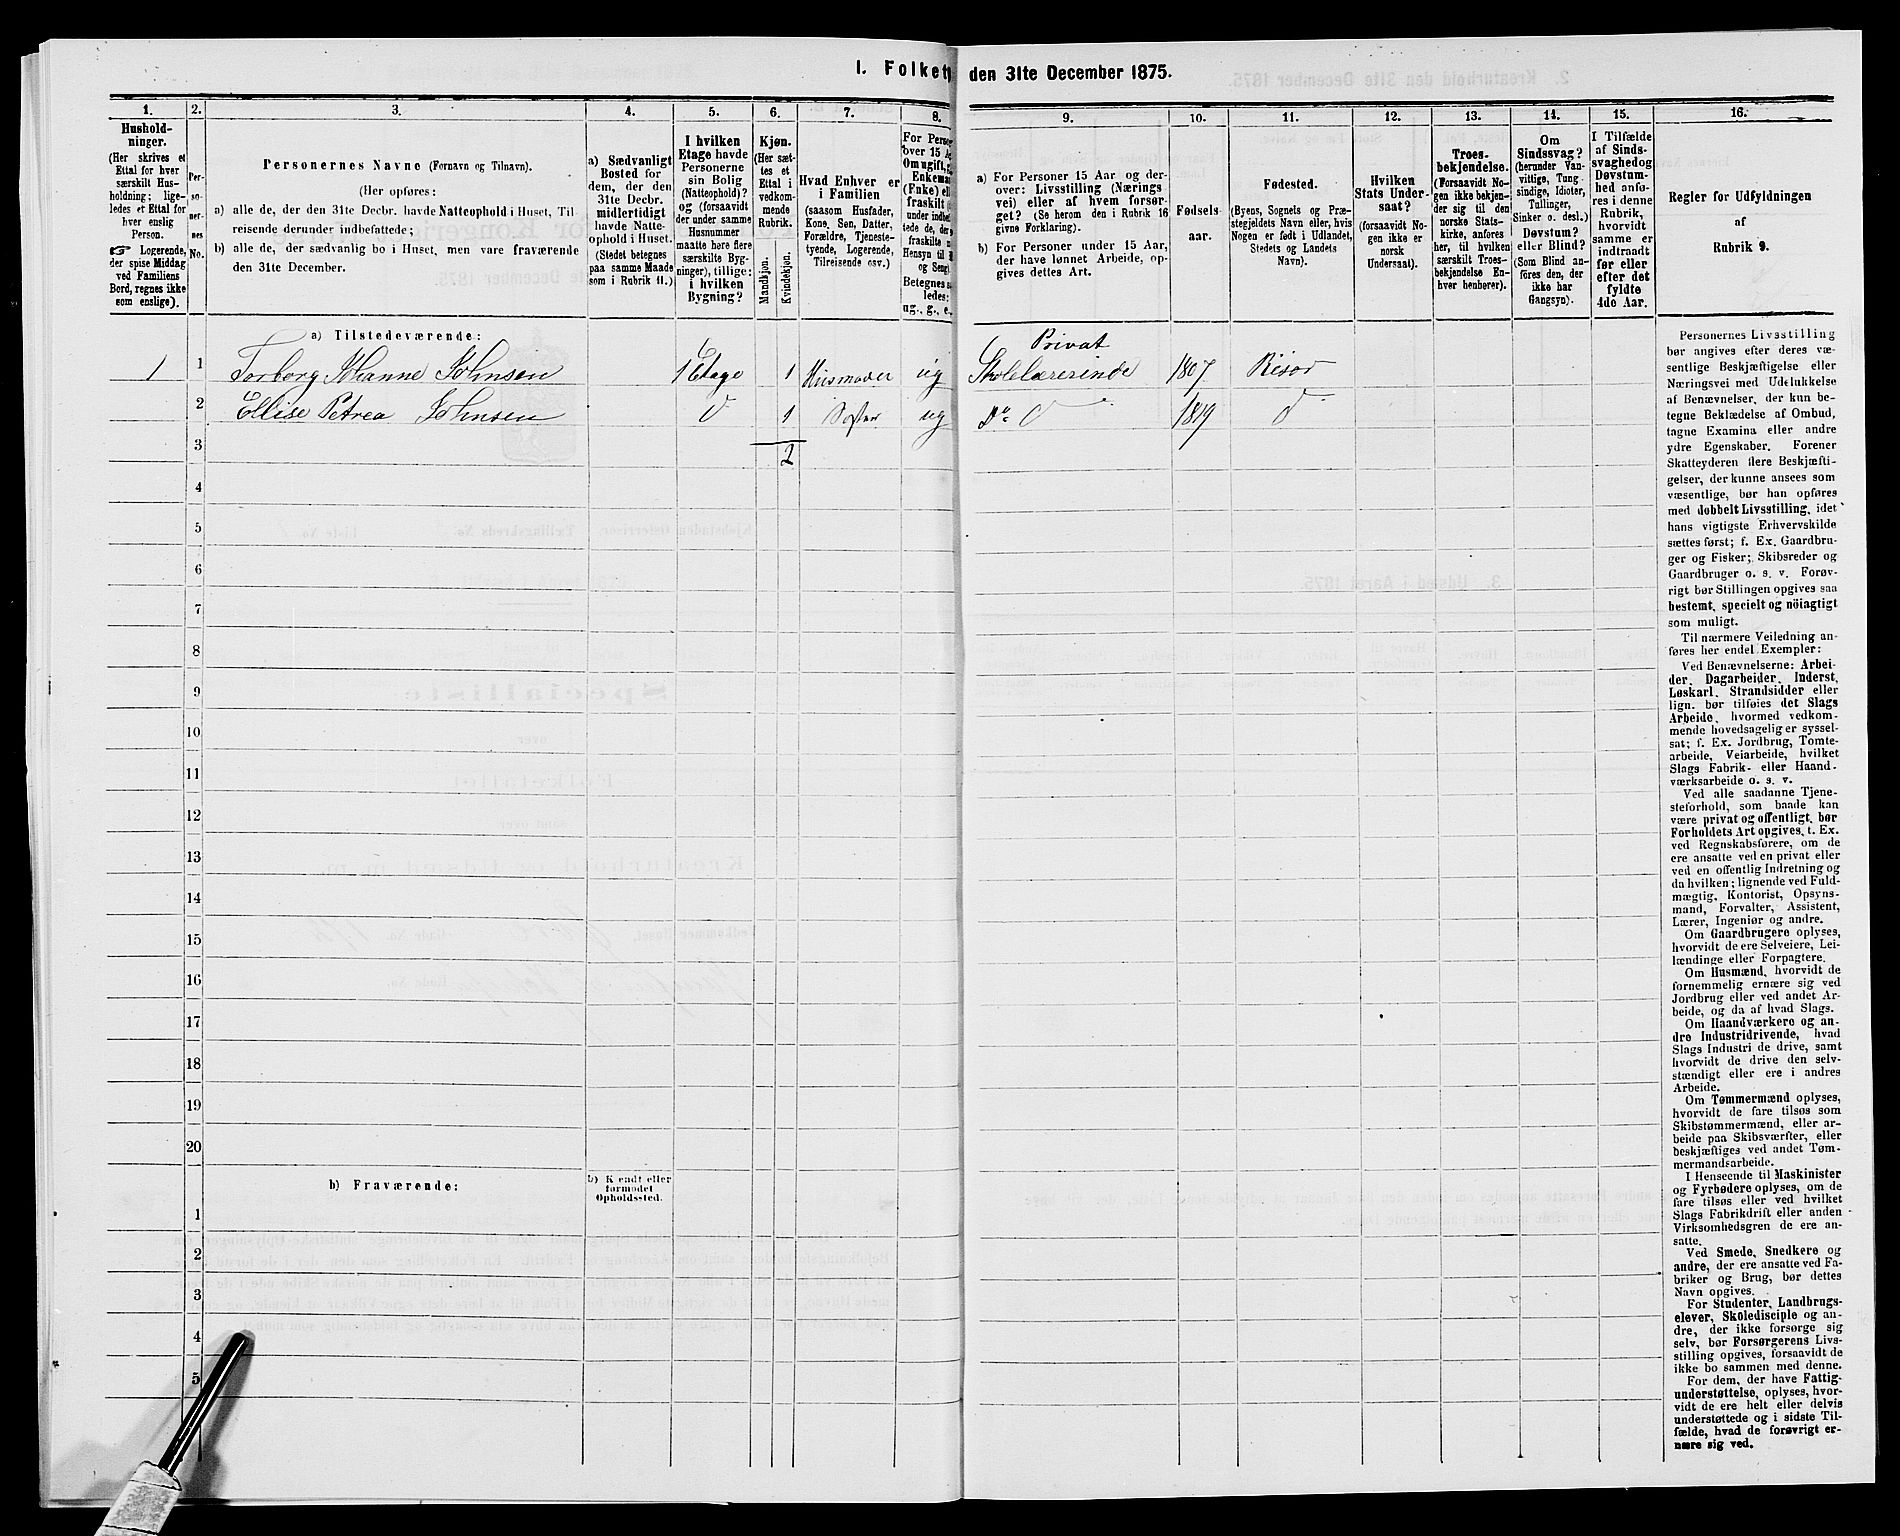 I. Folket
den 31te December 1875.
1.
Hushold-
ninger.
(Her skrives et
Ettal for hver
særskilt Hus-
holdning; lige-
ledes et Ettal for
hver enslig
Person.
☞ Logerende,
der spise Middag
ved Familiens
Bord, regnes ikke
som enslige).
2.
Per-
so-
ner-
nes
No.
3.
Personernes Navne (Fornavn og Tilnavn).
(Her opføres:
a) alle de, der den 31te Decbr. havde Natteophold i Huset, Til-
reisende derunder indbefattede;
b) alle de, der sædvanlig bo i Huset, men vare fraværende
den 31te December.
4.
a) Sædvanligt
Bosted for
dem, der den
31te Decbr.
midlertidigt
havde Natte-
ophold i Huset.
(Stedet betegnes
paa samme Maade
som i Rubrik 11.)
5.
I hvilken
Etage havde
Personerne
sin Bolig
(Natteophold)?
og (forsaavidt
der under samme
Husnummer
maatte høre flere
særskilte Byg-
ninger), tillige:
i hvilken
Bygning?
6.
Kjøn.
(Her sæt-
tes et
Ettal i
vedkom-
mende
Rubrik.
Mandkjøn.
Kvindekjøn.
7.
Hvad Enhver er
i Familien
(saasom Husfader,
Kone, Søn, Datter,
Forældre, Tjeneste-
tyende, Logerende,
Tilreisende osv.)
8.
For Perso
over 15 A
Om ugift, g
Enkema
(Fnke) ell
fraskilt
under indbe
tede de, der
fraskilte
Hensyn til
og Seng
Betegnes s
ledes:
ug., g., e.,
9.
a) For Personer 15 Aar og der-
over: Livsstilling (Nærings-
vei) eller af hvem forsør-
get? (Se herom den i Rubrik 16
givne Forklaring).
b) For Personer under 15 Aar,
der have lønnet Arbeide, op-
gives dettes Art.
10.
Fødsels-
aar.
11.
Fødested.
(Byens, Sognets og Præ-
stegjeldets Navn eller, hvis
Nogen er født i Udlandet,
Stedets og Landets
Navn).
12.
Hvilken
Stats Under-
saat?
(forsaavidt No-
gen ikke er
norsk
Undersaat).
13.
Troes-
bekjendelse.
(Forsaavidt No-
gen ikke bekjen-
der sig til den
norske Stats-
kirke, anføres
her, til hvilken
særskilt Troes-
bekjendelse En-
hver henhører).
14.
Om
Sindssvag?
(herunder Van-
vittige, Tung-
sindige, Idioter,
Tullinger,
Sinker o. desl.)
Døvstum?
eller Blind?
(Som Blind an-
føres den, der
ikke har
Gangsyn).
15.
I Tilfælde
af Sinds-
svaghed og
Døvstum-
hed anfø-
res i denne
Rubrik,
hvorvidt
samme er
indtraadt
før eller
efter det
fyldte
4de Aar.
16.
Regler for Udfyldningen
af
Rubrik 9.
a) Tilstedeværende:
Privat
1 1 Torborg Johanne Johnsen 1 Etage 1 Husmoder ug Skolelærerinde 1807 Risør
2 Ellise Petrea Johnsen D 1 Søster ug Do D 1819 D
3 2
4
5
6
7
8
9
10
11
12
13
14
15
16
17
18
19
20
b) Fraværende:
b) Kjendt eller
formodet
Opholdssted.
1
2
3
4
5
Personernes Livsstilling
bør angives efter deres væ-
sentlige Beskjæftigelse eller
Næringsvei med Udelukkelse
af Benævnelser, der kun be-
tegne Beklædelse af Ombud,
tagne Examina eller andre
ydre Egenskaber. Forener
Skatteyderen flere Beskjæfti-
gelser, der kunne ansees som
væsentlige, bør han opføres
med dobbelt Livsstilling, idet
hans vigtigste Erhvervskilde
sættes først; f. Ex. Gaardbru-
ger og Fisker; Skibsreder og
Gaardbruger o. s. v. Forøv-
rigt bør Stillingen opgives saa
bestemt, specielt og nöiagtigt
som muligt.
Til nærmere Veiledning an-
føres her endel Exempler:
Ved Benævnelserne: Arbei-
der, Dagarbeider, Inderst,
Løskarl, Strandsidder eller
lign. bør tilføies det Slags
Arbeide, hvormed vedkom-
mende hovedsagelig er syssel-
sat; f. Ex. Jordbrug, Tomte-
arbeide, Veiarbeide, hvilket
Slags Fabrik- eller Haand-
værksarbeide o. s. v.
Ved alle saadanne Tjene-
steforhold, som baade kan
være privat og offentligt, bør
Forholdets Art opgives, t. Ex.
ved Regnskabsførere, om de
ere ansatte ved en privat eller
ved en offentlig Indretning og
da hvilken; lignende ved Fuld-
mægtig, Kontorist, Opsyns-
mand, Forvalter, Assistent,
Lærer, Ingeniør og andre.
Om Gaardbrugere oplyses,
hvorvidt de ere Selveiere, Lei-
lændinge eller Forpagtere.
Om Husmænd, hvorvidt de
fornemmelig ernære sig ved
Jordbrug eller ved andet Ar-
beide, og da af hvad Slags.
Om Haandværkere og an-
dre Industridrivende, hvad
Slags Industri de drive, samt
hvorvidt de drive den selv-
stændigt eller ere i andres
Arbeide.
Om Tømmermænd oplyses,
hvorvidt de fare tilsøs som
Skibstømmermænd, eller ar-
beide paa Skibsværfter, eller
beskjæftiges ved andet Tøm-
mermandsarbeide.
I Henseende til Maskinister
og Fyrbødere oplyses, om de
fare tilsøs eller ved hvilket
Slags Fabrikdrift eller anden
Virksomhedsgren de ere an-
satte.
Ved Smede, Snedkere og
andre, der ere ansatte ved Fa-
briker og Brug, bør dettes
Navn opgives.
For Studenter, Landbrugs-
elever, Skoledisciple og an-
dre, der ikke forsørge sig
selv, bør Forsørgerens Livs-
stilling opgives, forsaavidt de
ikke bo sammen med denne.
For dem, der have Fattig-
understøttelse, oplyses, hvor-
vidt de ere helt eller delvis
understøttede og i sidste Til-
fælde, hvad de forøvrigt er-
nære sig ved.